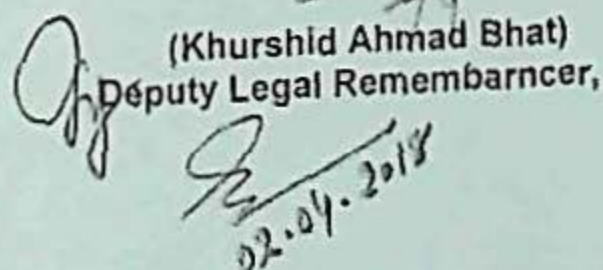 (Khurshid Ahmad Bhat)
Deputy Legal Remembarncer,
02.04.2018